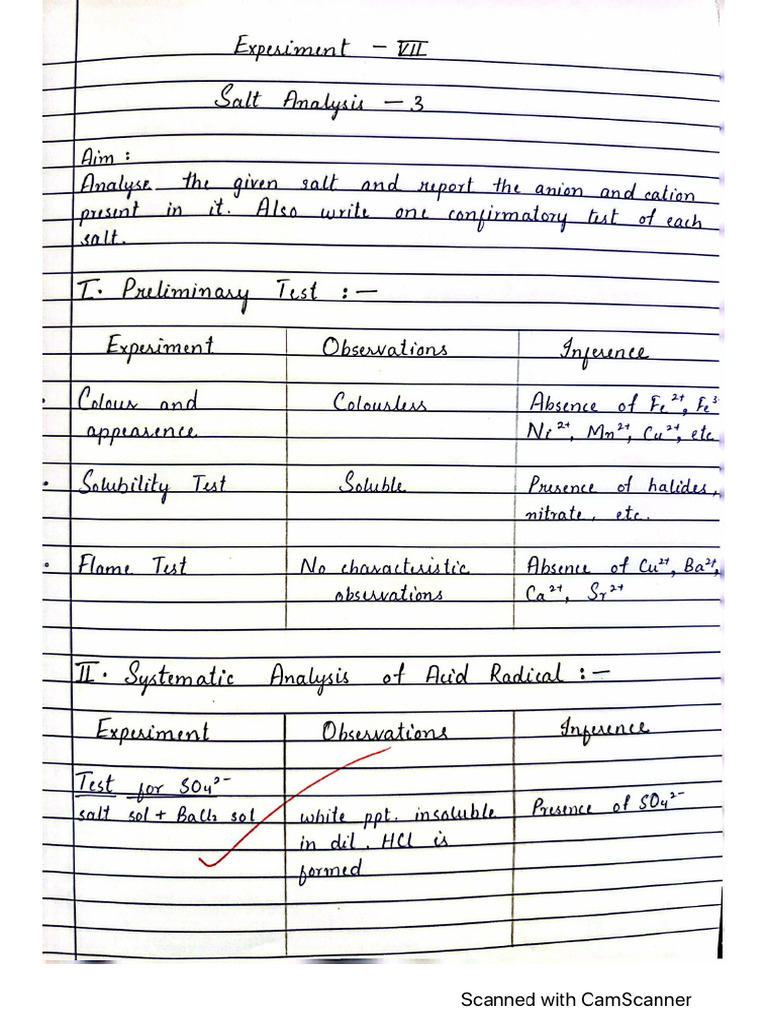 Experiment - VII
Salt Analysis - 3
Aim :
Analyse the given salt and report the anion and cation
present in it. Also write one confirmatory test of each
salt.
I. Preliminary Test :-
Experiment Observations Inference
Colour and Colourless Absence of Fe²⁺, Fe³
appearence Ni²⁺, Mn²⁺, Cu²⁺, etc
Solubility Test Soluble Presence of halides,
nitrate, etc.
Flame Test No characteristic Absence of Cu²⁺, Ba²⁺,
observations Ca²⁺, Sr²⁺
II. Systematic Analysis of Acid Radical :-
Experiment Observations Inference
Test for SO₄²⁻
salt sol + BaCl₂ sol white ppt. insoluble Presence of SO₄²⁻
in dil. HCl is
formed
Scanned with CamScanner